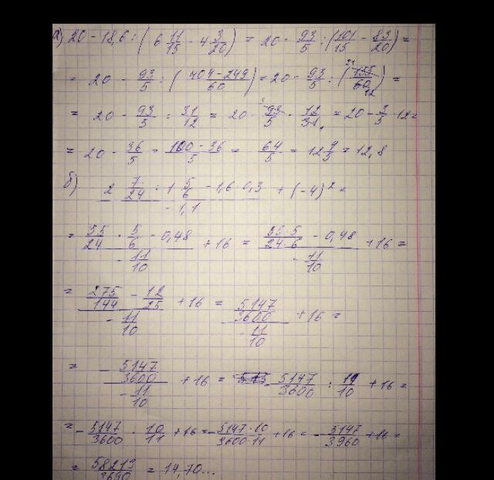 а) 20 - 18,6 : (6 11/15 - 4 3/20) = 20 - 93/5 : (101/15 - 83/20) =
= 20 - 93/5 : (404-249/60) = 20 - 93/5 : (155/60) =
= 20 - 93/5 : 31/12 = 20 - 93/5 · 12/31 = 20 - 3/5 · 12 =
= 20 - 36/5 = 100-36/5 = 64/5 = 12 4/5 = 12,8
б) 2 7/24 : 1 5/6 - 1,6 · 0,3 / -1,1 + (-4)² =
= 55/24 · 5/6 - 0,48 / -11/10 + 16 = 55·5/24·6 - 0,48 / -11/10 + 16 =
= 275/144 - 12/25 / -11/10 + 16 = 5147/3600 / -11/10 + 16 =
= - 5147/3600 / -11/10 + 16 = - 5147/3600 : 11/10 + 16 =
= - 5147/3600 · 10/11 + 16 = - 5147·10/3600·11 + 16 = - 5147/3960 + 16 =
= 58213/3690 = 14,70...